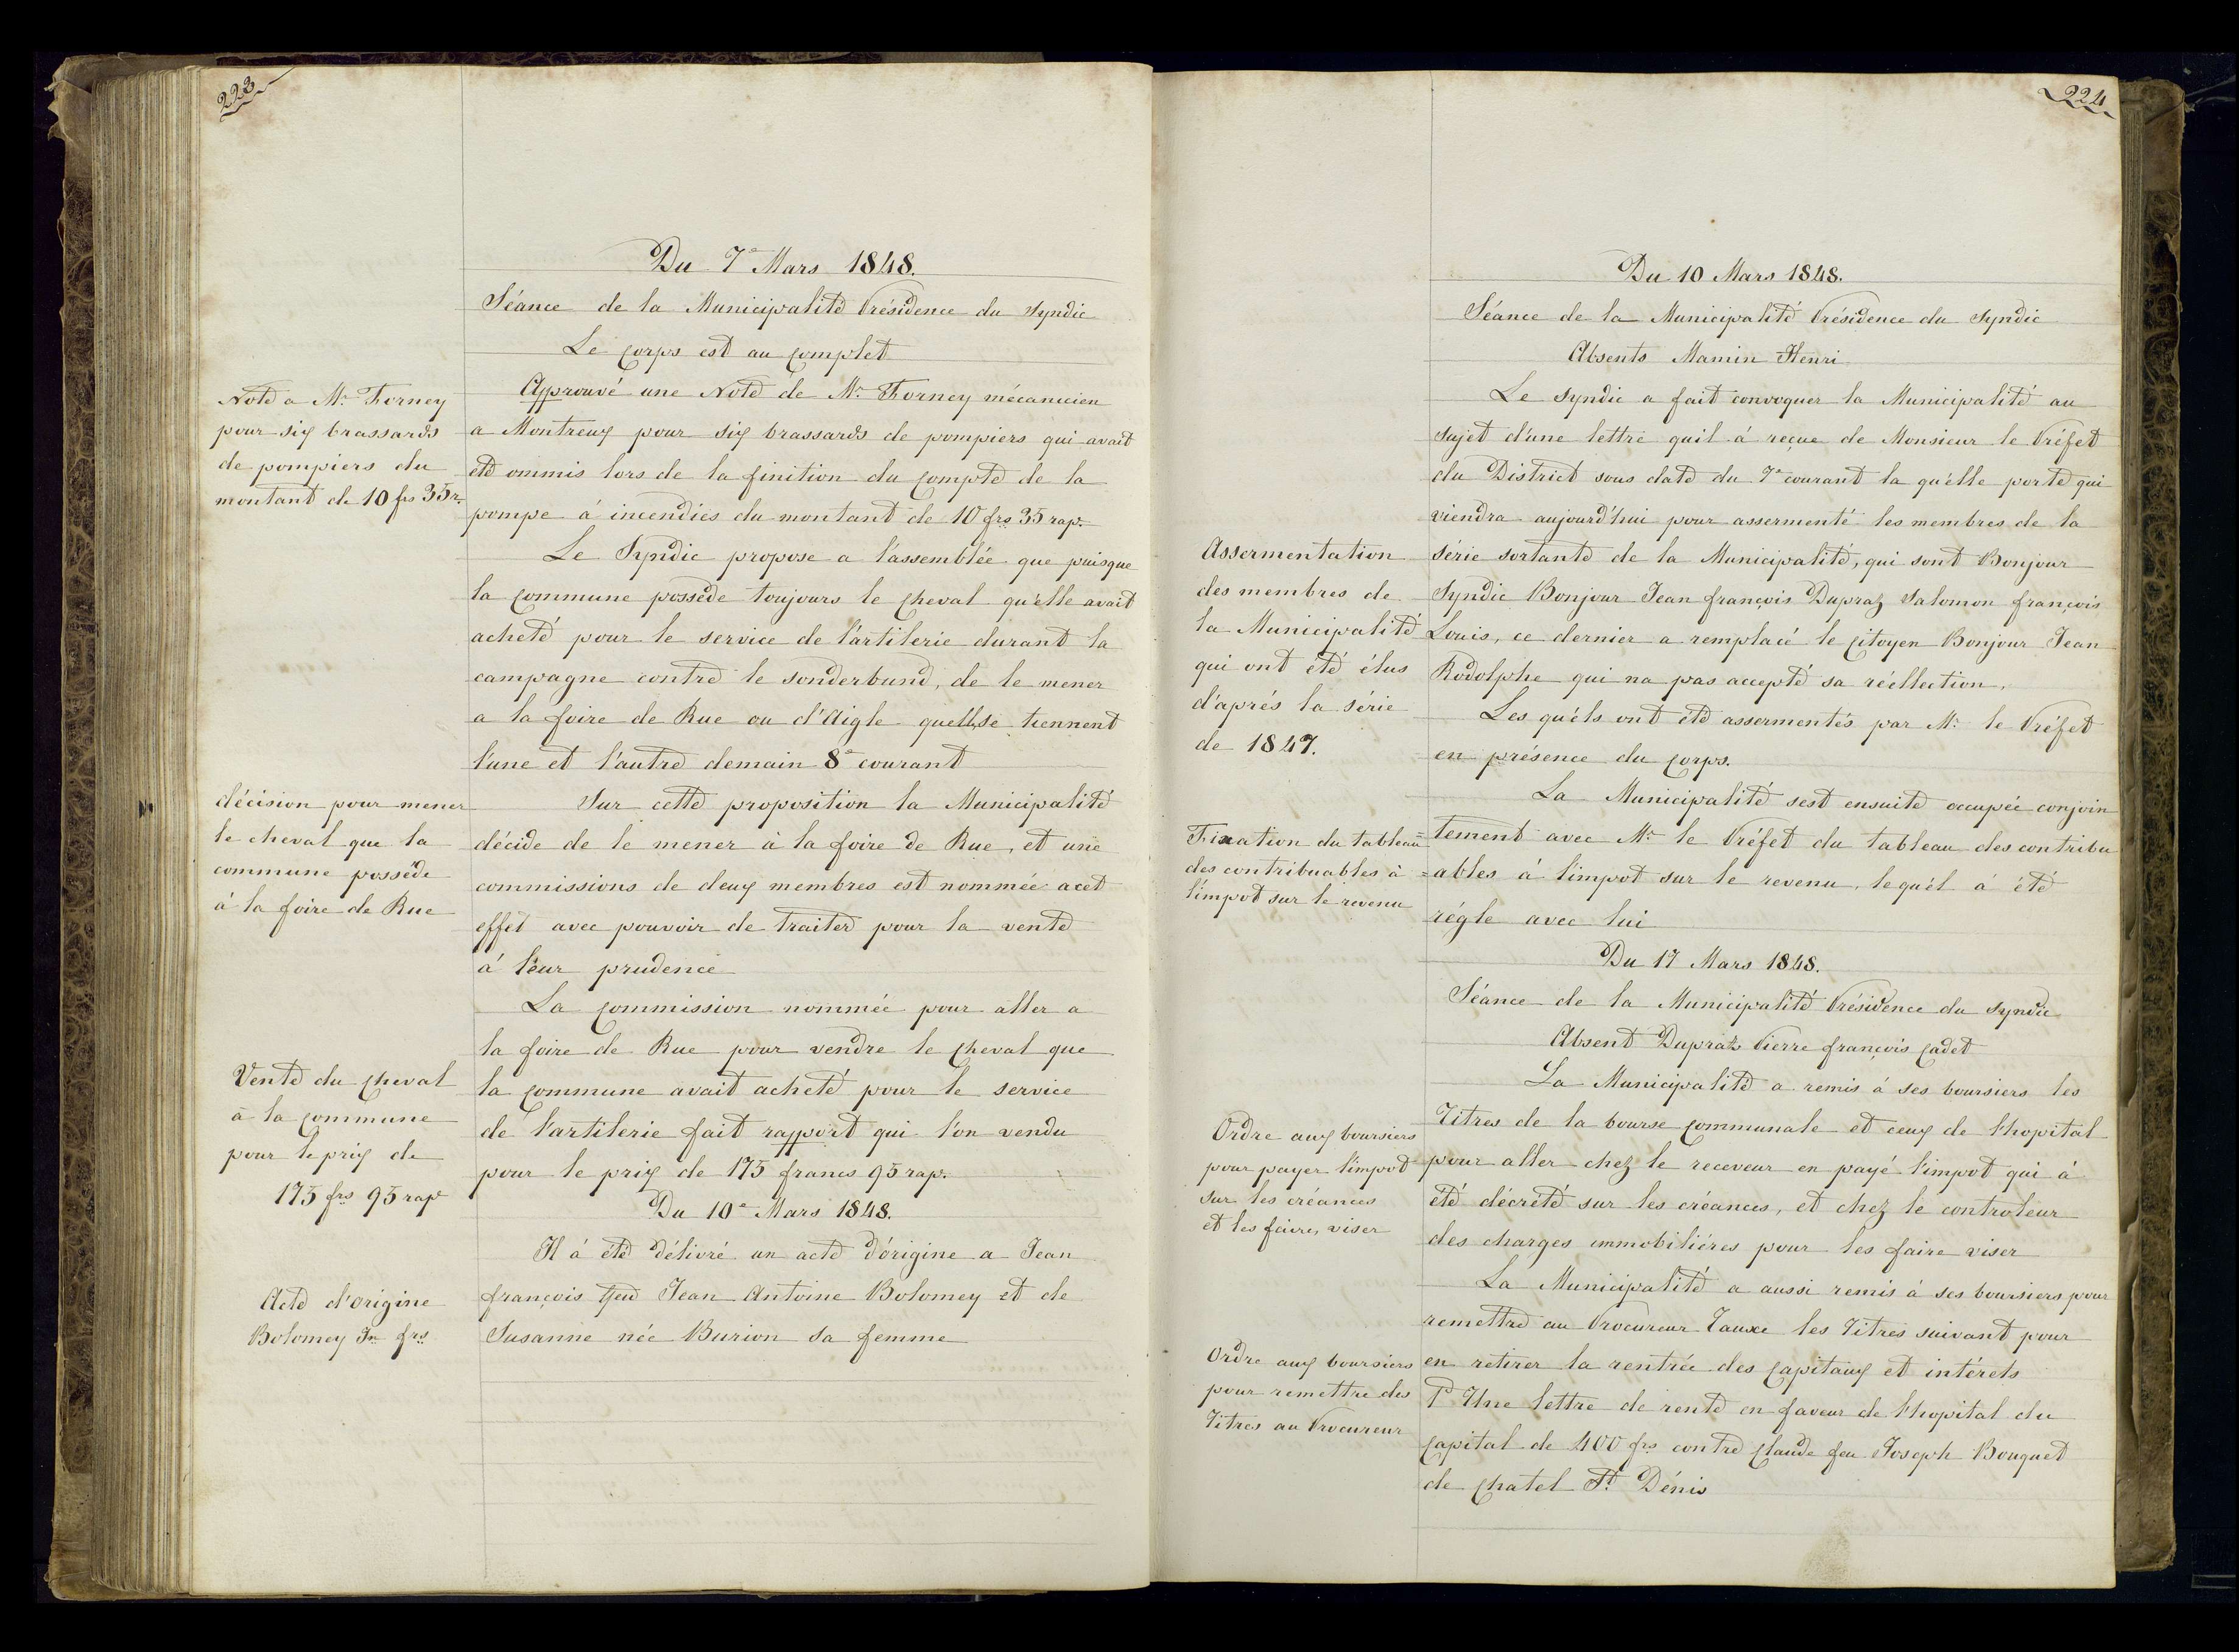 223
Du 7e Mars 1848.
Séance de la Municipalité Présidence du Syndic
Le corps est au complet
Note a Mr Forney
pour six brassards
de pompiers du
montant de 10 frs 35 r.
Approuvé une Note de Mr Forney mécanicien
a Montreux pour six brassards de pompiers qui avait
été ommis lors de la finition du compte de la
pompe á incendies du montant de 10 frs 35 rap.
Le Syndic propose a l'assemblée que puisque
la commune posséde toujours le cheval qu'elle avait
acheté pour le service de l'artilerie durant la
campagne contre le sonderbund, de le mener
a la foire de Rue ou d'Aigle quell se tiennent
l'une et l'autre demain 8e courant
décision pour mener
le cheval que la
commune posséde
á la foire de Rue
Sur cette proposition la Municipalité
décide de le mener á la foire de Rue, et une
commissions de deux membres est nommée acet
effet avec pouvoir de traiter pour la vente
á leur prudence
La commission nommée pour aller a
la foire de Rue pour vendre le cheval que
la commune avait acheté pour le service
de l'artilerie fait rapport qui l'on vendu
pour le prix de 175 francs 95 rap.
Vente du cheval
á la commune
pour le prix de
175 frs 95 rap.
Du 10e Mars 1848.
Il á été délivré un acte d'origine a Jean
françois feu Jean Antoine Bolomey et de
Susanne née Burion sa femme
Acte d'origine
Bolomey Jn frs
224
Du 10 Mars 1848.
Séance de la Municipalité Présidence du Syndic
Absents Mamin Henri
Le Syndic a fait convoquer la Municipalité au
sujet d'une lettre quil á reçue de Monsieur le Préfet
du District sous date du 7e courant la qu'elle porte qui
viendra aujourd'hui pour assermenté les membres de la
série sortante de la Municipalité, qui sont Bonjour
Syndic Bonjour Jean françois Dupraz Salomon françois
Louis, ce dernier a remplacé le citoyen Bonjour Jean
Rodolphe qui na pas accepté sa réellection.
Les qu'els ont été assermentés par Mr le Préfet
en présence du corps.
Assermentation
des membres de
la Municipalité
qui ont été élus
d'aprés la série
de 1847.
La Municipalité sest ensuite occupée conjoin
tement avec Mr le Préfet du tableau des contribu
=ables á l'impot sur le revenu, lequél á été
régle avec lui
Fixation du tableau
des contribuables á
l'impot sur le revenu
Du 17 Mars 1848.
Séance de la Municipalité Présidence du Syndic
Absent Dupraz Pierre françois cadet
La Municipalité a remis á ses boursiers les
Titres de la bourse communale et ceux de l'hopital
pour aller chez le receveur en payé l'impot qui á
été décrété sur les créances, et chez le controleur
des charges immobiliéres pour les faire viser
Ordre aux boursiers
pour payer l'impot
sur les créances
et les faire viser
La Municipalité a aussi remis á ses boursiers pour
remettre au Procureur Tauxe les Titres suivant pour
en retirer la rentrée des capitaux et intérets
1° Une lettre de rente en faveur de l'hopital du
capital de 400 frs contre Claude feu Joseph Bouquet
de Chatel St Dénis
Ordre aux boursiers
pour remettre des
Titres au Procureur